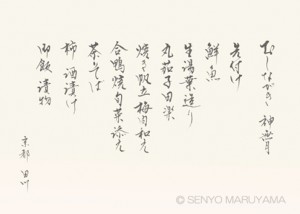 むしながさき 神無月
先付け
鮮魚
生湯葉造り
丸茄子田楽
焼き帆立梅肉和え
合鴨焼旬菜添え
茶そば
柿酒漬け
御飯漬物
京都 田川
© SENYO MARUYAMA